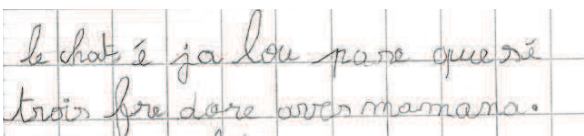 le chat é ja lou parse que sé
trois fre dore avec mamama.